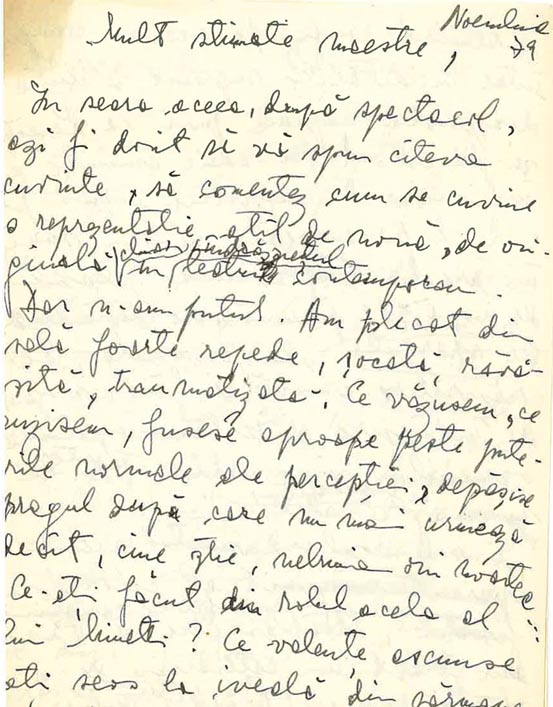 Noembrie
79
Mult stimate maestre,
In seara aceea, după spectacol,
ași fi dorit să vă spun cîteva
cuvinte, să comentez cum se cuvine
o reprezentație atît de nouă, de ori-
ginală (chiar) în teatrul contemporan.
Dar n-am putut. Am plecat din
sală foarte repede, șocată, răvă-
șită, traumatizată. Ce văzusem, ce
auzisem, fusese aproape peste pute-
rile normale ale percepției, depășise
pragul după care nu mai urmează
decît, cine știe, nebunia ori moartea...
Ce-ați făcut din rolul acela al
lui ? Ce valențe ascunse
ați scos la iveală din